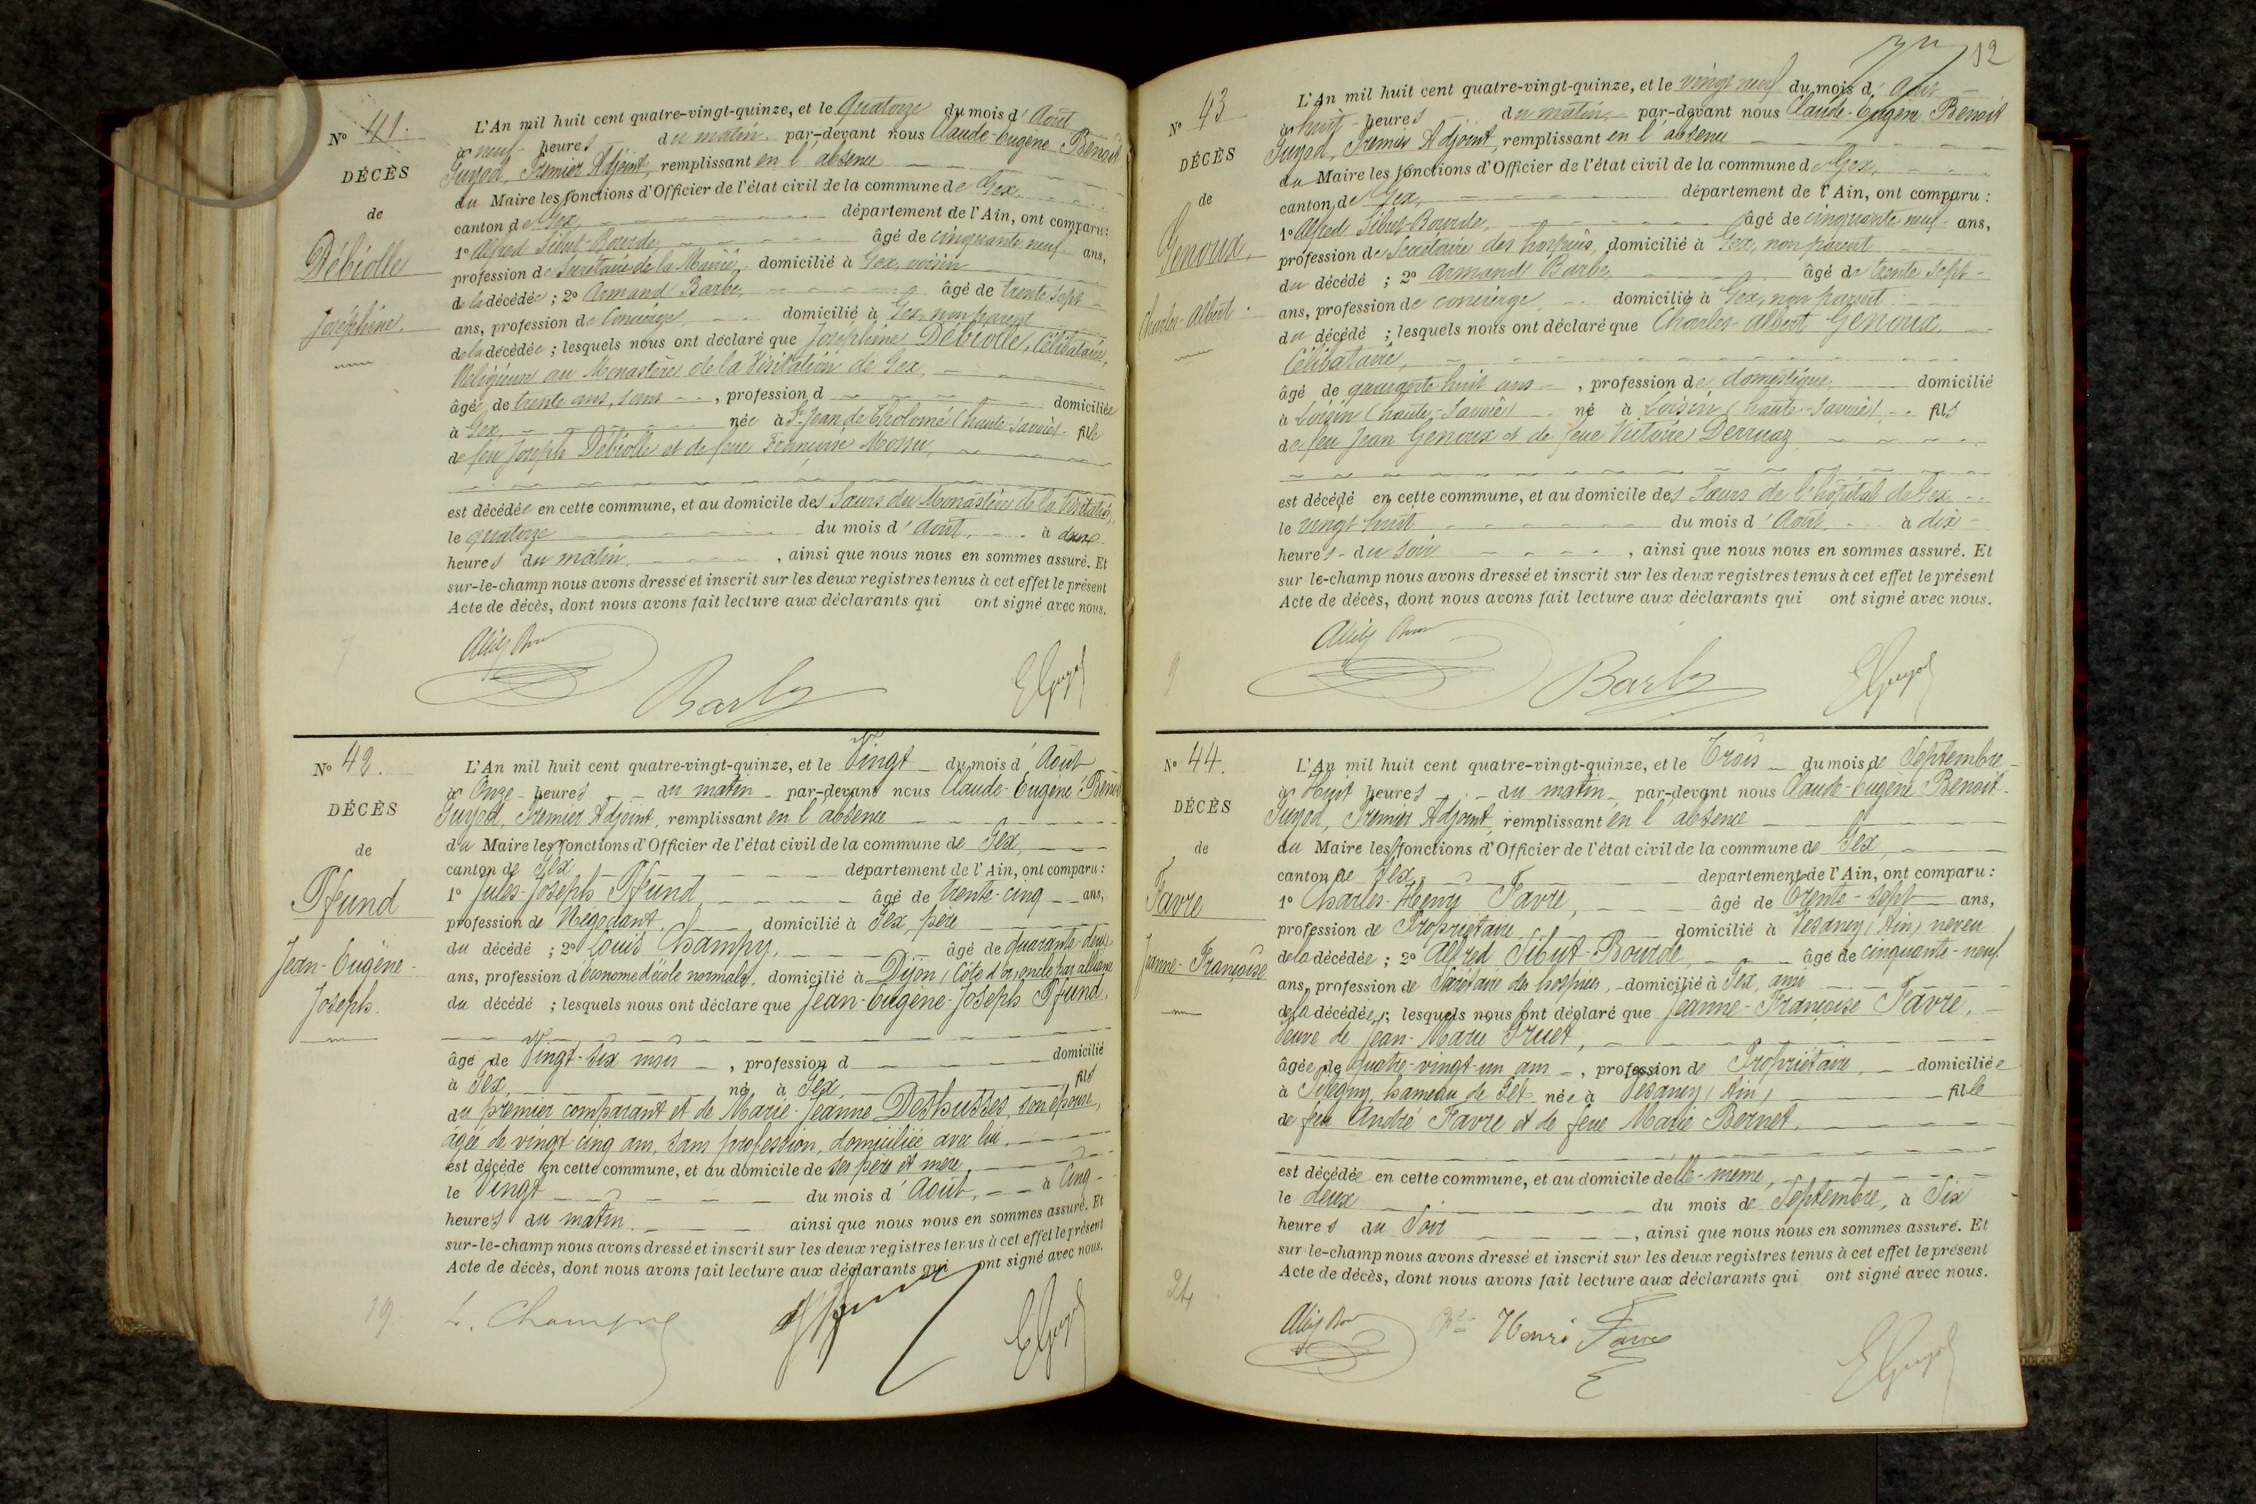 No 41.
DÉCÈS
de
Débiolle
Joséphine.
L'An mil huit cent quatre-vingt-quinze, et le Quatorze du mois d'Août
à neuf heures du matin par-devant nous Claude-Eugène Benoit
Guyod, Premier Adjoint, remplissant en l'absence
du Maire les fonctions d'Officier de l'état civil de la commune de Gex,
canton de Gex, département de l'Ain, ont comparu:
1° Alfred Sibut-Bourde, âgé de cinquante neuf ans,
profession de Secrétaire de la Mairie domicilié à Gex, voisin
de la décédée; 2° Armand Barbe, âgé de trente sept
ans, profession de Concierge domicilié à Gex, non parent
de la décédée; lesquels nous ont déclaré que Joséphine Débiolle, Célibataire,
Religieuse au Monastère de la Visitation de Gex,
âgée de trente ans, sans, profession d domiciliée
à Gex, née à St Jean de Tholome (haute-Savoie) fille
de feu Joseph Débiolle et de feue Françoise
est décédée en cette commune, et au domicile des Sœurs du Monastère de la Visitation,
le quatorze du mois d'Août, à
heures du matin, ainsi que nous nous en sommes assuré. Et
sur-le-champ nous avons dressé et inscrit sur les deux registres tenus à cet effet le présent
Acte de décès, dont nous avons fait lecture aux déclarants qui ont signé avec nous.
Barbe EGuyod
No 42.
DÉCÈS
de
Pfund
Jean-Eugène-
Joseph.
L'An mil huit cent quatre-vingt-quinze, et le Vingt du mois d'Août
à Onze heures du matin par-devant nous Claude-Eugène Benoit
Guyod, Premier Adjoint, remplissant en l'absence
du Maire les fonctions d'Officier de l'état civil de la commune de Gex,
canton de Gex département de l'Ain, ont comparu:
1° Jules-Joseph Pfund, âgé de trente-cinq ans,
profession de Négociant, domicilié à Gex, père
du décédé; 2° Louis Champy, âgé de quarante-deux
ans, profession d'économe d'école normale, domicilié à Dijon (Côte d'or) oncle par alliance
du décédé; lesquels nous ont déclaré que Jean-Eugène-Joseph Pfund,
âgé de Vingt-six mois, profession d domicilié
à Gex, né à Gex, fils
du premier comparant et de Marie-Jeanne Deshusses, son épouse,
âgée de vingt-cinq ans, sans profession, domiciliée avec lui
est décédé en cette commune, et au domicile de ses père et mère,
le Vingt du mois d'Août, à Cinq
heures du matin, ainsi que nous nous en sommes assuré. Et
sur-le-champ nous avons dressé et inscrit sur les deux registres tenus à cet effet le présent
Acte de décès, dont nous avons fait lecture aux déclarants qui ont signé avec nous.
19 L. Champy EGuyod
12
No 43
DÉCÈS
de
Genoux,
Charles-Albert
L'An mil huit cent quatre-vingt-quinze, et le vingt neuf du mois d'Août
à huit heures du matin, par-devant nous Claude-Eugène Benoit
Guyod, Premier Adjoint, remplissant en l'absence
du Maire les fonctions d'Officier de l'état civil de la commune de Gex,
canton de Gex, département de l'Ain, ont comparu:
1° Alfred Sibut-Bourde, âgé de cinquante neuf ans,
profession de Secrétaire des hospices, domicilié à Gex, non parent
du décédé; 2° Armand Barbe, âgé de trente sept
ans, profession de concierge domicilié à Gex, non parent
du décédé; lesquels nous ont déclaré que Charles-Albert Genoux,
Célibataire,
âgé de quarante huit ans, profession de domestique, domicilié
à Loisin (haute-Savoie) né à Loisin (haute-Savoie) fils
de feu Jean Genoux et de feue Victoire Derruaz
est décédé en cette commune, et au domicile des Sœurs de l'hôpital de Gex
le vingt huit du mois d'Août, à dix
heures du soir, ainsi que nous nous en sommes assuré. Et
sur le-champ nous avons dressé et inscrit sur les deux registres tenus à cet effet le présent
Acte de décès, dont nous avons fait lecture aux déclarants qui ont signé avec nous.
Barbe EGuyod
No 44.
DÉCÈS
de
Favre
Jeanne-Françoise
L'An mil huit cent quatre-vingt-quinze, et le Trois du mois de Septembre
à Huit heures du matin, par-devant nous Claude-Eugène Benoit
Guyod, Premier Adjoint, remplissant en l'absence
du Maire les fonctions d'Officier de l'état civil de la commune de Gex,
canton de Gex, département de l'Ain, ont comparu:
1° Charles-Henri Favre, âgé de trente-sept ans,
profession de Propriétaire domicilié à Vesancy (Ain) neveu
de la décédée; 2° Alfred Sibut-Bourde, âgé de cinquante-neuf
ans, profession de Secrétaire des hospices, domicilié à Gex, ami
de la décédée; lesquels nous ont déclaré que Jeanne-Françoise Favre,
Veuve de Jean-Marie Gruet,
âgée de quatre-vingt-un ans, profession de Propriétaire, domiciliée
à hameau de Gex née à Vesancy (Ain) fille
de feu André Favre et de feue Marie Bernet.
est décédée en cette commune, et au domicile d'elle-même,
le deux du mois de Septembre, à Six
heures du Soir, ainsi que nous nous en sommes assuré. Et
sur-le-champ nous avons dressé et inscrit sur les deux registres tenus à cet effet le présent
Acte de décès, dont nous avons fait lecture aux déclarants qui ont signé avec nous.
Henri Favre EGuyod